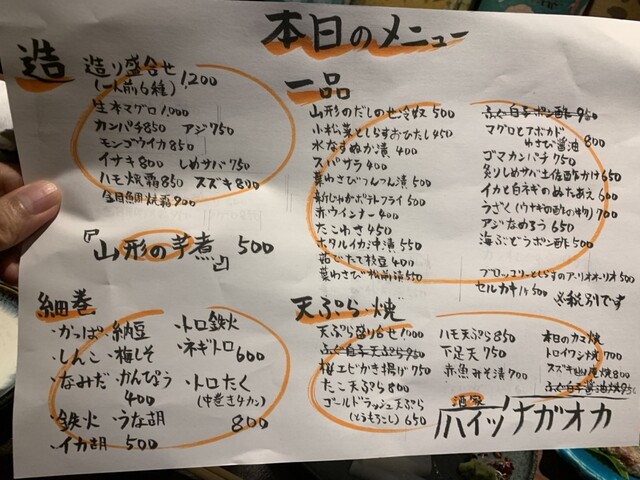 本日のメニュー
造
造り盛合せ
(一人前6種) 1,200
生本マグロ 1,000
カンパチ 850 アジ 750
モンゴウイカ 850
イサキ 800 しめサバ 750
ハモ焼霜 850 スズキ 800
金目鯛焼霜 900
『山形の芋煮』 500
細巻
・かっぱ ・納豆
・しんこ ・梅しそ
・なみだ ・かんぴょう
400
・鉄火 ・うな胡
・イカ胡 500
・トロ鉄火
・ネギトロ 600
・トロたく
(中巻き4カン)
800
一品
山形のだしのせ冷奴 500
小松菜としらすおひたし 450
水なすぬか漬 400
スパサラ 400
葉わさびつんつん漬 500
ポテトフライ 500
赤ウインナー 400
たこわさ 450
ホタルイカ沖漬 550
茹でたて枝豆 400
葉わさび松前漬 550
ふぐ白子ポン酢 950
マグロとアボカド
わさび醤油 800
ゴマカンパチ 750
炙りしめサバ土佐酢かけ 650
イカと白ネギのぬたあえ 600
うざく(ウナギの酢の物) 700
アジなめろう 650
海ぶどうポン酢 500
ブロッコリーとしらすのアーリオオーリオ 500
セルカキ 1ヶ 500 ※税別です
天ぷら・焼
天ぷら盛り合せ 1,000
ふぐ白子天ぷら 950
桜エビかき揚げ 750
たこ天ぷら 800
ゴールドラッシュ天ぷら
(とうもろこし) 650
ハモ天ぷら 850
下足天 750
赤魚みそ漬 700
本日のカマ焼
トロイワシ焼 700
スズキ幽庵焼 800
ふぐ白子醤油焼 950
酒家
ハイツナガオカ